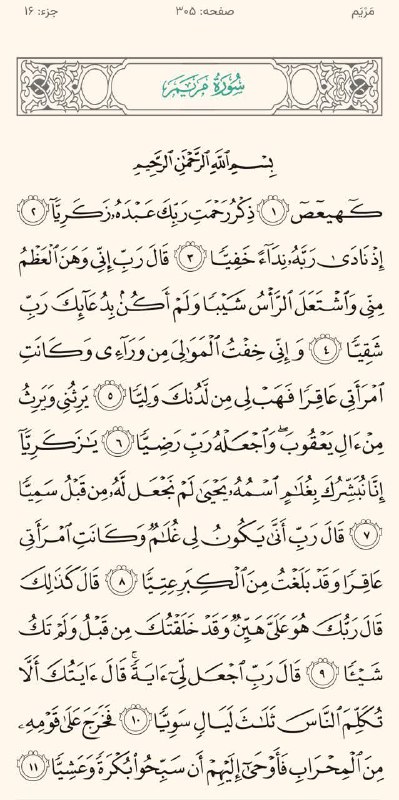 مَرْيَم صفحه: ۳۰۵ جزء: ۱۶
سُورَةُ مَرْيَمَ
بِسْمِ ٱللَّهِ ٱلرَّحْمَٰنِ ٱلرَّحِيمِ
كٓهيعٓصٓ ١ ذِكْرُ رَحْمَتِ رَبِّكَ عَبْدَهُۥ زَكَرِيَّآ ٢
إِذْ نَادَىٰ رَبَّهُۥ نِدَآءً خَفِيّٗا ٣ قَالَ رَبِّ إِنِّي وَهَنَ ٱلْعَظْمُ
مِنِّي وَٱشْتَعَلَ ٱلرَّأْسُ شَيْبٗا وَلَمْ أَكُنۢ بِدُعَآئِكَ رَبِّ
شَقِيّٗا ٤ وَإِنِّي خِفْتُ ٱلْمَوَٰلِيَ مِن وَرَآءِي وَكَانَتِ
ٱمْرَأَتِي عَاقِرٗا فَهَبْ لِي مِن لَّدُنكَ وَلِيّٗا ٥ يَرِثُنِي وَيَرِثُ
مِنْ ءَالِ يَعْقُوبَۖ وَٱجْعَلْهُ رَبِّ رَضِيّٗا ٦ يَٰزَكَرِيَّآ
إِنَّا نُبَشِّرُكَ بِغُلَٰمٍ ٱسْمُهُۥ يَحْيَىٰ لَمْ نَجْعَل لَّهُۥ مِن قَبْلُ سَمِيّٗا
٧ قَالَ رَبِّ أَنَّىٰ يَكُونُ لِي غُلَٰمٞ وَكَانَتِ ٱمْرَأَتِي
عَاقِرٗا وَقَدْ بَلَغْتُ مِنَ ٱلْكِبَرِ عِتِيّٗا ٨ قَالَ كَذَٰلِكَ
قَالَ رَبُّكَ هُوَ عَلَيَّ هَيِّنٞ وَقَدْ خَلَقْتُكَ مِن قَبْلُ وَلَمْ تَكُ
شَيْـٔٗا ٩ قَالَ رَبِّ ٱجْعَل لِّيٓ ءَايَةٗۚ قَالَ ءَايَتُكَ أَلَّا
تُكَلِّمَ ٱلنَّاسَ ثَلَٰثَ لَيَالٖ سَوِيّٗا ١٠ فَخَرَجَ عَلَىٰ قَوْمِهِۦ
مِنَ ٱلْمِحْرَابِ فَأَوْحَىٰٓ إِلَيْهِمْ أَن سَبِّحُوا۟ بُكْرَةٗ وَعَشِيّٗا ١١